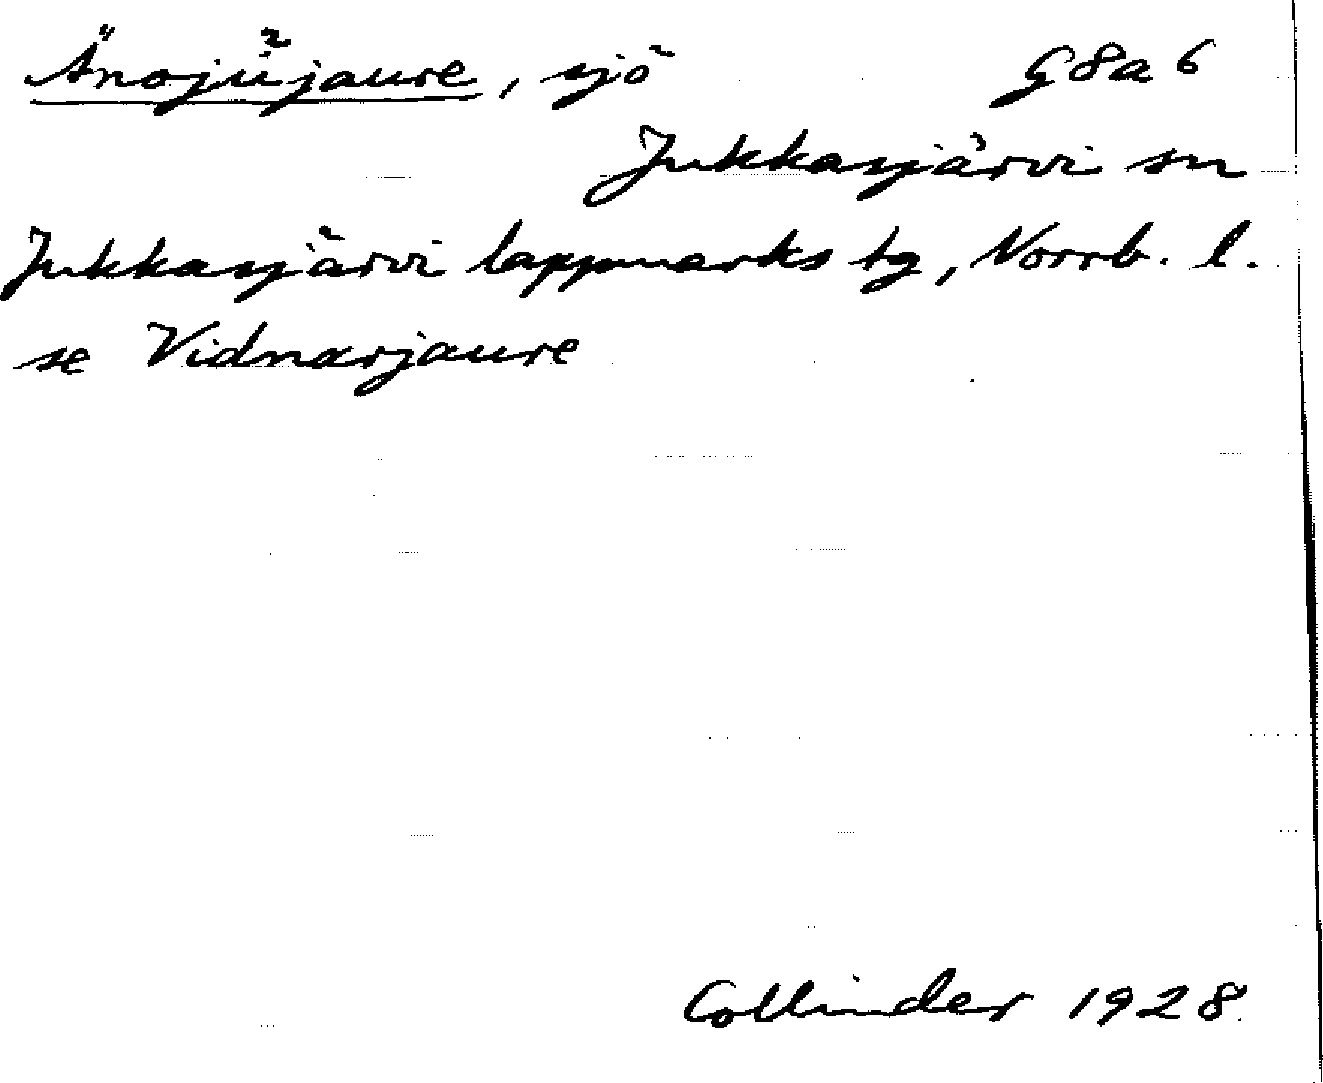 Änojǔjaure, sjö G8a6
Jukkasjärvi sn
Jukkasjärvi lappmarks tg, Norrb. l.
se Vidnarjaure
Collinder 1928